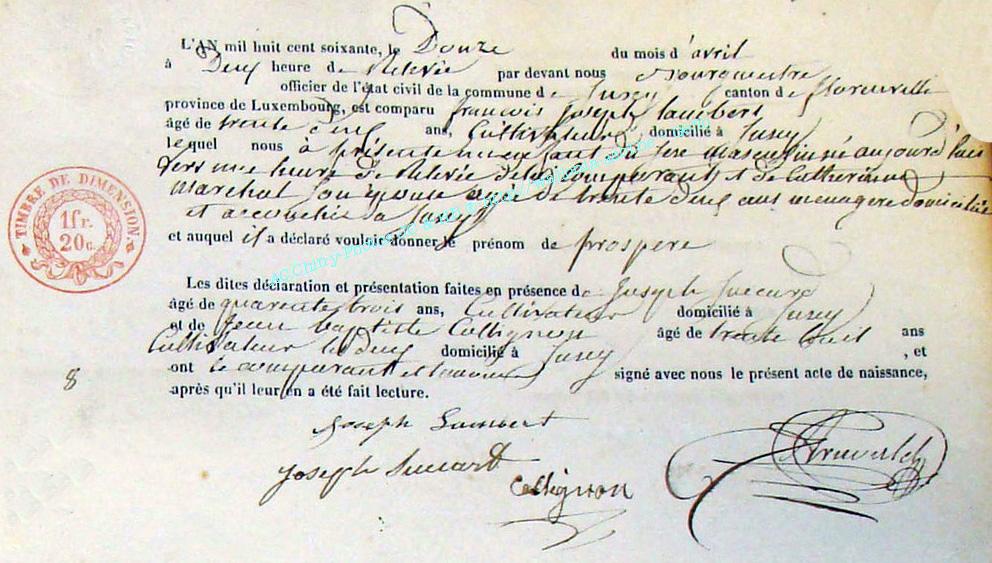 L'AN mil huit cent soixante, le Douze du mois d'avril
à Deux heure de Relevée par devant nous Bourgmestre
officier de l'état civil de la commune de Jusey canton de florenville
province de Luxembourg, est comparu françois Joseph Lambert
âgé de trente cinq ans, Cultivateur domicilié à Jusey
lequel nous à présenté un enfant du sexe Masculin né aujourd'hui
vers une heure de Relevée de lui comparant et de Catherinne
Marchal son épouse agée de trente deux ans menagere domiciliée
et accouchée à Jusey
et auquel il a déclaré vouloir donner le prénom de prospere
TIMBRE DE DIMENSION
1 fr.
20 c.
Les dites déclaration et présentation faites en présence de Joseph
âgé de quarente trois ans, Cultivateur domicilié à Jusey
et de Jean baptiste Collignon âgé de trente huit ans
Cultivateur les deux domicilié à Jusey , et
ont le comparant et temoins signé avec nous le présent acte de naissance,
8
après qu'il leur en a été fait lecture.
Joseph Lambert
Joseph
Collignon